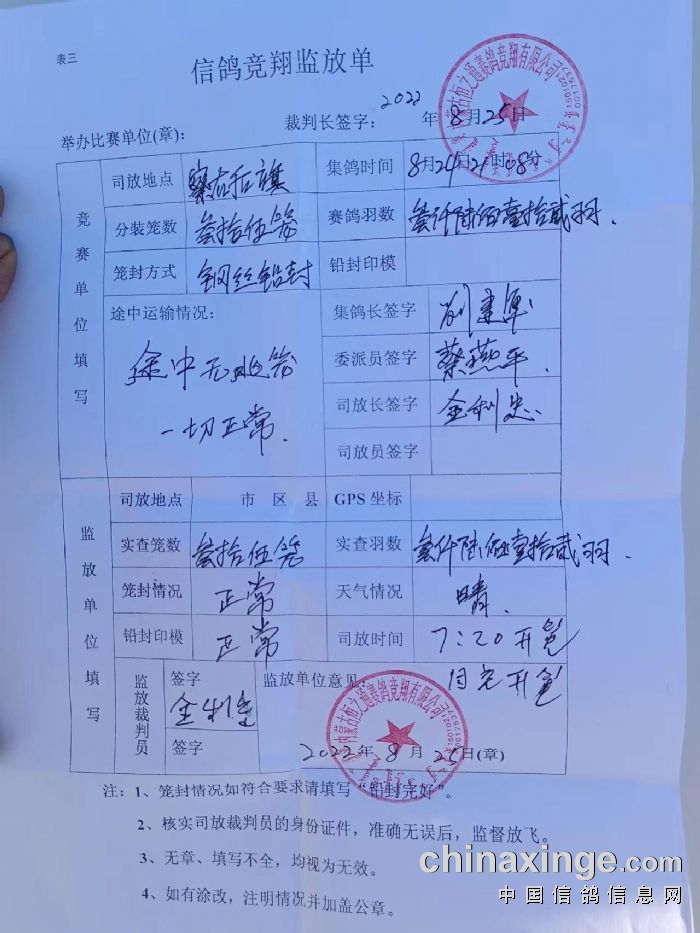 表三
信鸽竞翔监放单
举办比赛单位(章): 裁判长签字: 2022年8月25日
内蒙古恒之通赛鸽竞翔有限公司
竞赛单位填写
司放地点 察右后旗 集鸽时间 8月24日21时08分
分装笼数 叁拾伍笼 赛鸽羽数 叁仟陆佰壹拾贰羽.
笼封方式 钢丝铅封 铅封印模
途中运输情况: 集鸽长签字
途中无 委派员签字 蔡燕平
一切正常. 司放长签字 金利忠
司放员签字
监放单位填写
司放地点 市 区 县 GPS 坐标
实查笼数 叁拾伍笼 实查羽数 叁仟陆佰壹拾贰羽.
笼封情况 正常 天气情况 晴.
铅封印模 正常 司放时间 7:20开笼
监放裁判员 签字 金利忠 监放单位意见: 同意开笼
签字 2022年8月25日(章)
内蒙古恒之通赛鸽竞翔有限公司
注: 1、笼封情况如符合要求请填写“铅封完好”。
2、核实司放裁判员的身份证件，准确无误后，监督放飞。
3、无章、填写不全，均视为无效。
4、如有涂改，注明情况并加盖公章。
chinaxinge.com
中国信鸽信息网